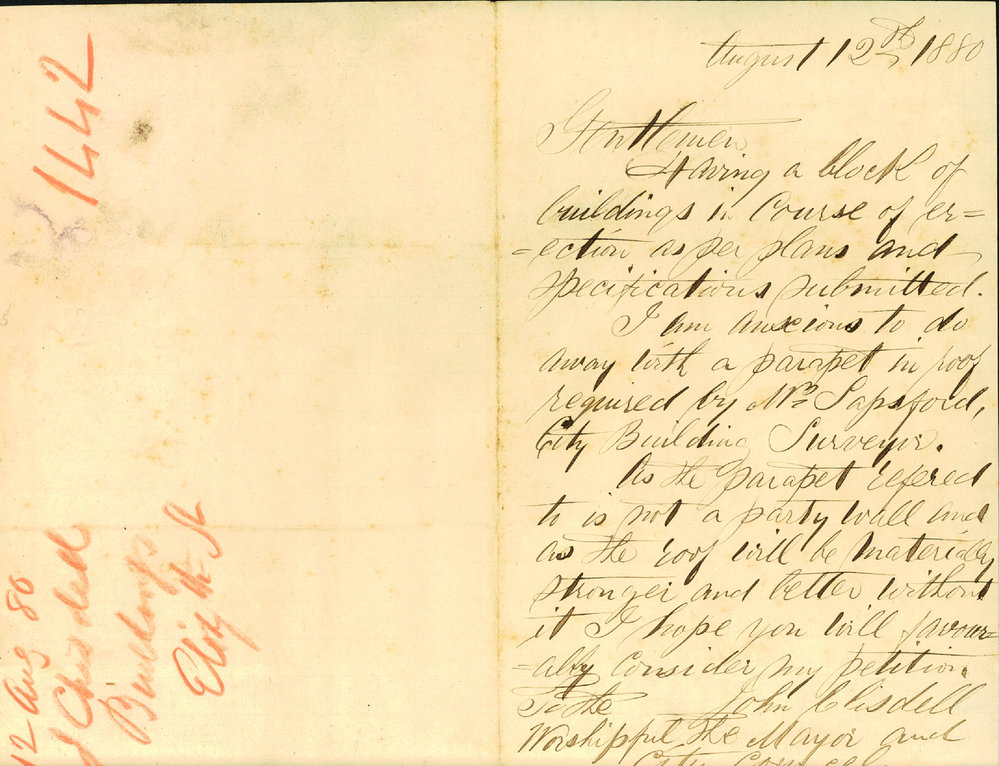 1442
12 Aug 80
J Chisdell
Buildings
Eliz th St
August 12th 1880
Gentlemen
Having a block of
buildings in Course of er=
=ection as per plans and
specifications submitted.
I am anxcious to do
away with a parapet in roof
required by Mr Sapsford,
City Building Surveyor.
As the parapet refered
to is not a party wall and
as the roof will be materially
stronger and better without
it I hope you will favour=
=ably consider my petition
To the John Clisdell
Worshipful the Mayor and
City Council